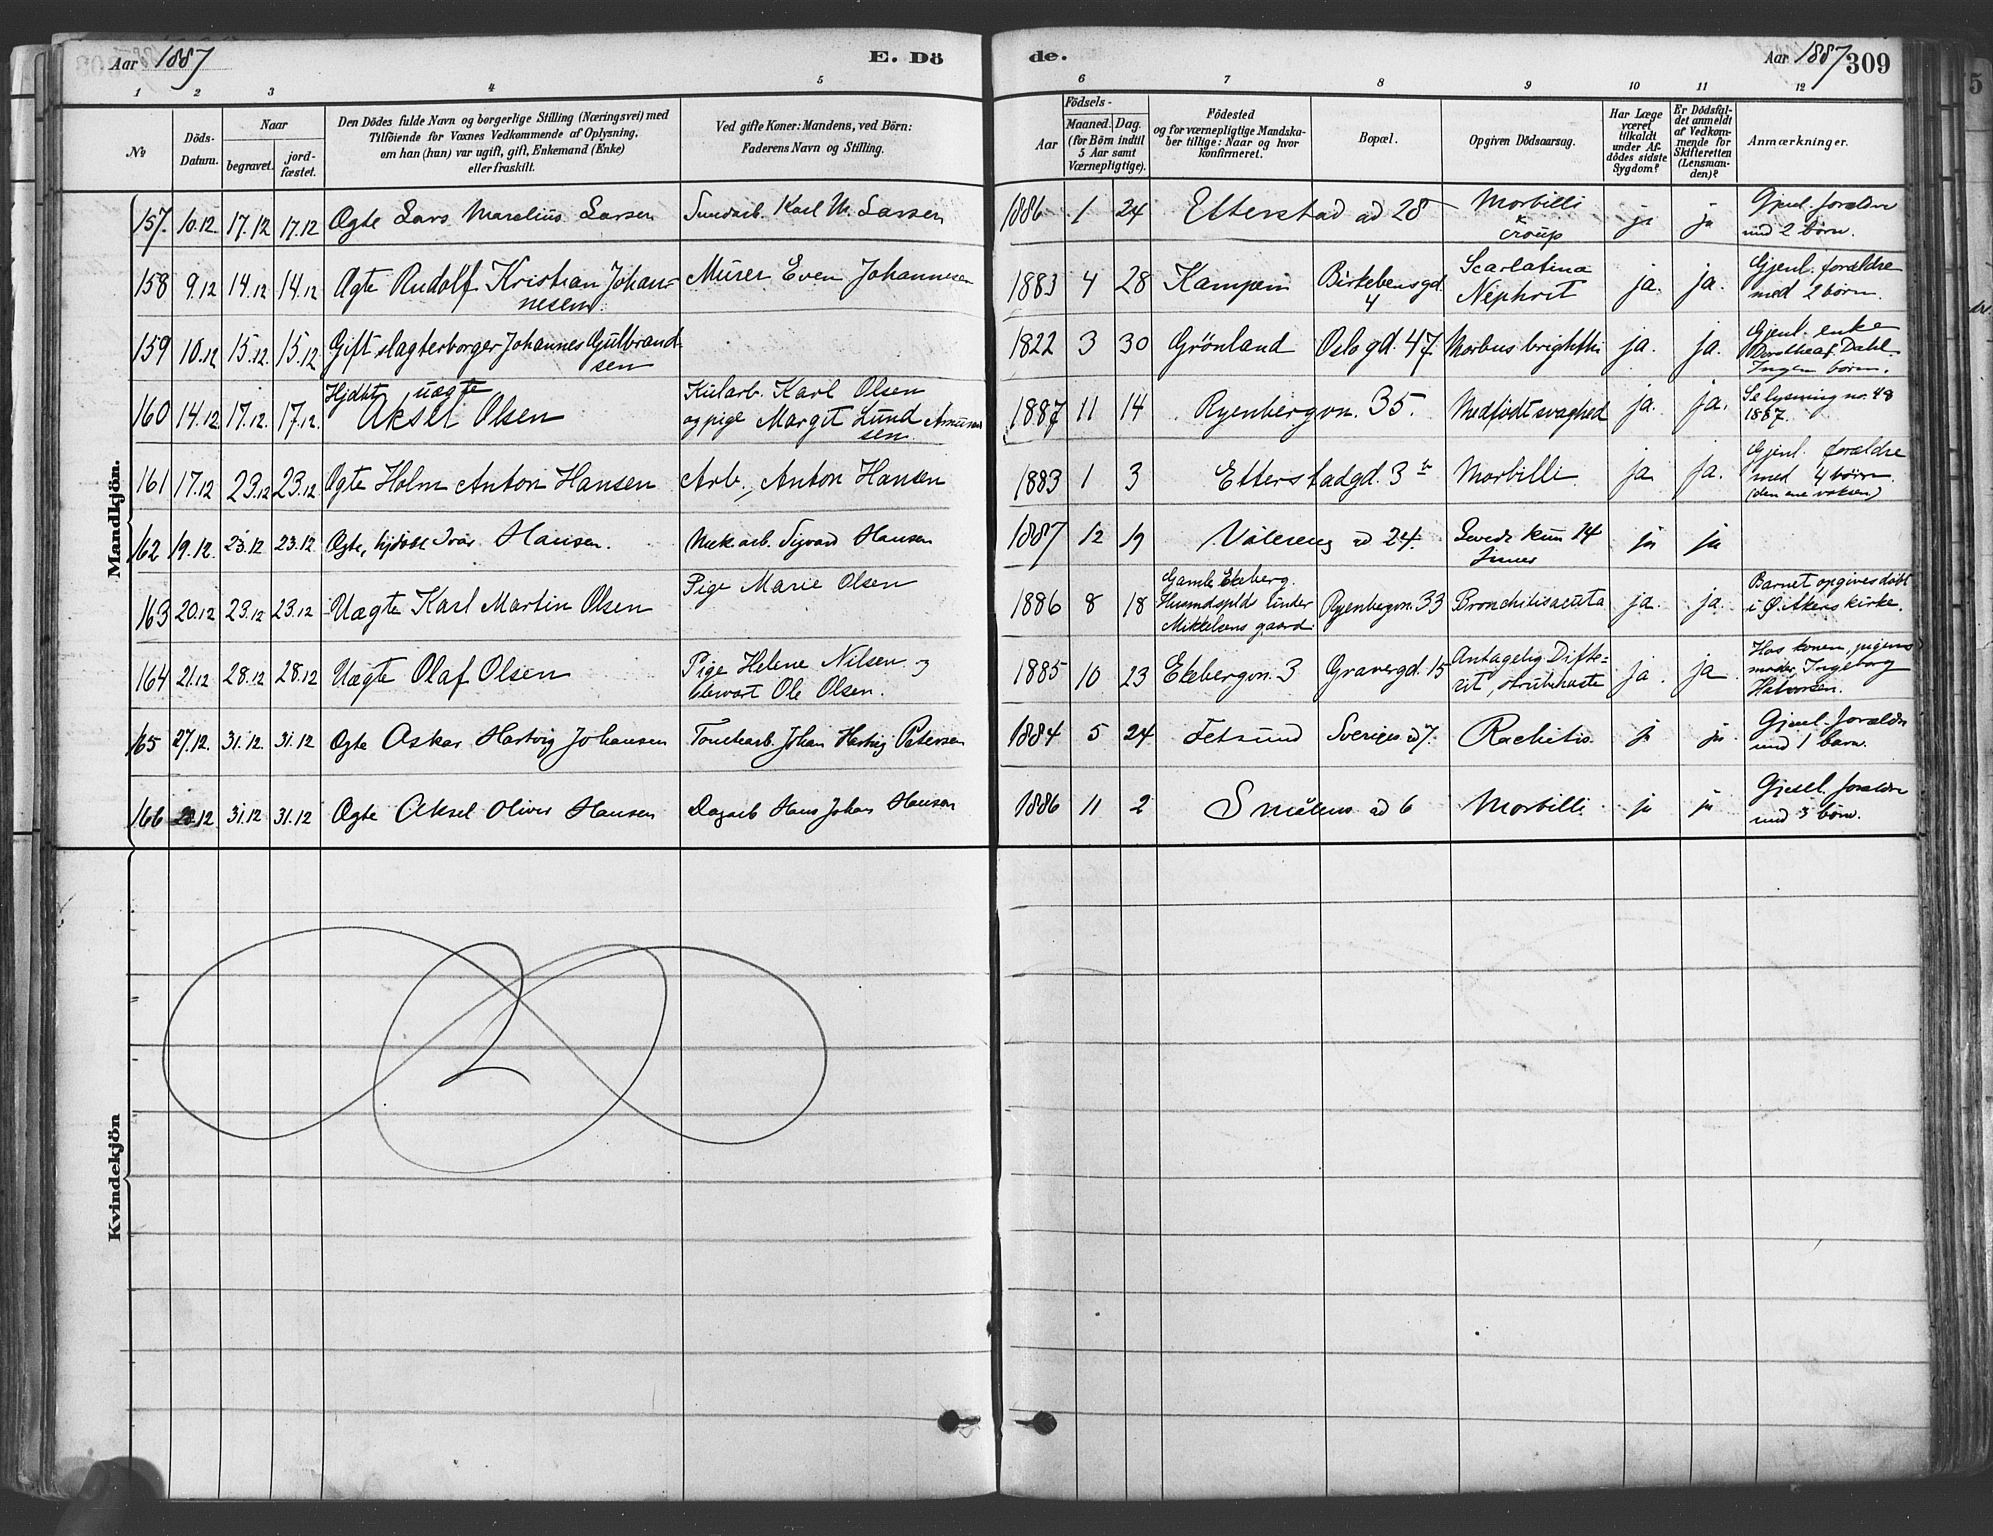 Aar 1887
E. Dö
de.
Aar 1887 309
1 2 3 4 5 6 7 8 9 10 11 12
No
Döds-Datum.
Naar
begravet. jord-fæstet.
Den Dödes fulde Navn og borgerlige Stilling (Næringsvei) med
Tilföiende for Voxnes Vedkommende af Oplysning,
om han (hun) var ugift, gift, Enkemand (Enke)
eller fraskilt.
Ved gifte Koner: Mandens, ved Börn:
Faderens Navn og Stilling.
Födsels-
Aar
Maaned. Dag.
(for Börn indtil
5 Aar samt
Værnepligtige).
Födested
og for værnepligtige Mandska-
ber tillige: Naar og hvor
konfirmeret.
Bopæl.
Opgiven Dödsaarsag.
Har Læge
været
tilkaldt
under Af-
dödes sidste
Sygdom?
Er Dödsfal-
det anmeldt
af Vedkom-
mende for
Skifteretten
(Lensman-
den)?
Anmærkninger.
Mandkjön.
157. 10.12 17.12 17.12 Ægte Lars Marelius Larsen Karl M. Larsen 1886 1 24 Etterstad ad 28 Morbilli croup ja ja Gjenl. forældre med 2 börn.
158 9.12 14.12 14.12 Ægte Rudolf Kristian Johan=nesen Murer Even Johannesen 1883 4 28 Kampen Birkebeinsgd. 4 Scarlatina Nephrit ja. ja. Gjenl. forældre med 2 börn.
159 10.12 15.12 15.12 Gift slagterborger Johannes Gulbrandsen 1822 3 30 Grönland Oslogd. 47 Morbus brighthi ja. ja. Gjenl. enke Dorothea f. Dahl. Ingen börn.
160 14.12 17.12 17.12 Hjdbt uægte Aksel Olsen Kularb. Karl Olsen og pige Margit Lund 1887 11 14 Ryenbergvn. 35. Medfödt svaghed ja. ja. Se lysning no. 48 1887.
161 17.12 23.12 23.12 Ægte Holm Anton Hansen Arb. Anton Hansen 1883 1 3 Etterstadgd. 3 b Morbilli ja ja. Gjenl. forældre med 4 börn (den ene voksen)
162 19.12. 23.12 23.12 Ægte, hjdöbt Ivar Hansen. Mekarb. Sigvard Hansen 1887 12 19 Vålereng ad 24. Levede kun 14 timer ja ja
163 20.12 23.12 23.12 Uægte Karl Martin Olsen Pige Marie Olsen 1886 8 18 Gamle Ekeberg. Husmdspld under Mikkelsens gaard Ryenbergvn. 33 Bronchitis acuta ja. ja. Barnet opgives döbt i Ø. Akers kirke.
164 21.12 28.12 28.12 Uægte Olaf Olsen Pige Helene Nilsen og stewart Ole Olsen. 1885 10 23 Ekebergvn. 3 Gravergd. 15 Antagelig Difte=rit, strubehoste ja. ja Hos konen, pigens moder, Ingeborg Halvorsen.
165 27.12. 31.12 31.12 Ægte Oskar Hartvig Johansen Tomtearb. Johan Hartvig Petersen 1884 5 24 Fetsund Sveriges ad 7. Rachitis ja ja Gjenl. forældre med 1 barn.
166 28.12 31.12 31.12 Ægte Aksel Oliver Hansen Dagarb Hans Johan Hansen 1886 11 2 Smålens ad 6 Morbilli ja ja Gjenl. forældre med 3 börn.
Kvindekjön